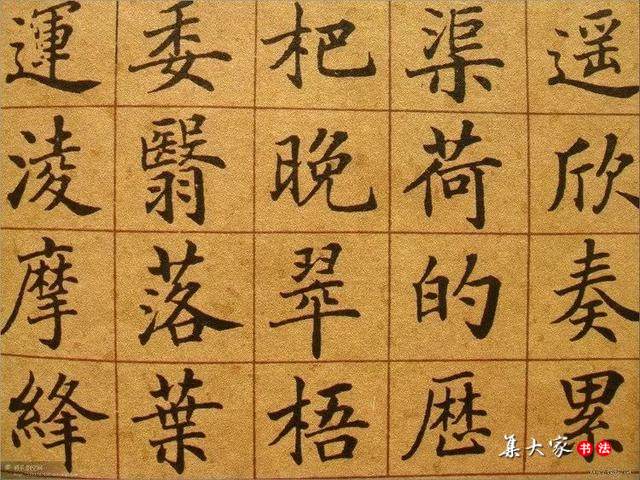 遥欣奏累
渠荷的歷
杷晚翠梧
委翳落葉
運淩摩絳
集大家书法